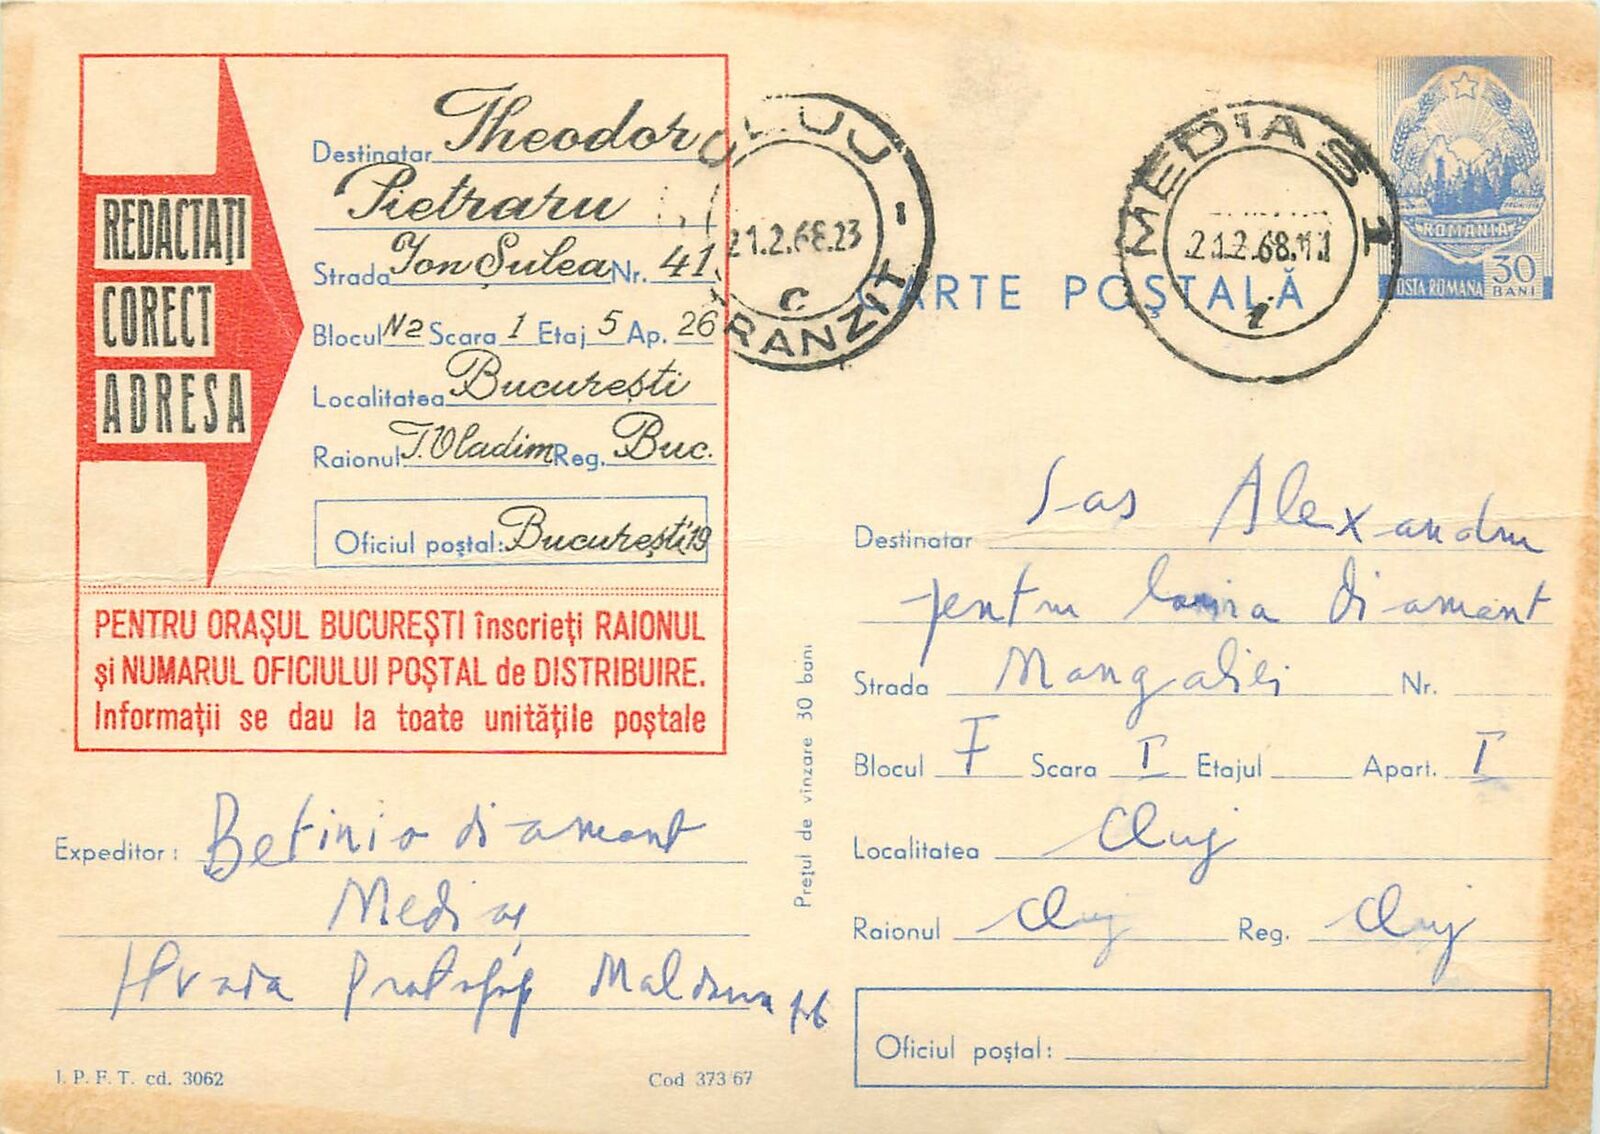 REDACTAȚI
CORECT
ADRESA
Destinatar Theodor
Pietraru
Strada Ion Șulea Nr. 41
Blocul N2 Scara 1 Etaj 5 Ap. 26
Localitatea București
Raionul T. Vladim Reg. Buc.
Oficiul poștal: București 19
PENTRU ORAȘUL BUCUREȘTI înscrieți RAIONUL
și NUMARUL OFICIULUI POȘTAL de DISTRIBUIRE.
Informații se dau la toate unitățile poștale
CLUJ - TRANZIT
21.2.68.23
c
MEDIAS 1
21.2.68.11
i
ROMANIA
POSTA ROMANA
30
BANI
CARTE POȘTALĂ
Destinatar Sas Alexandru
pentru diamant
Strada Mangaliei Nr.
Blocul F Scara I Etajul Apart. I
Localitatea Cluj
Raionul Cluj Reg. Cluj
Oficiul poștal:
Prețul de vînzare 30 bani
Expeditor: diamant
Mediaș
Maldarm
I. P. F. T. cd. 3062
Cod 373 67